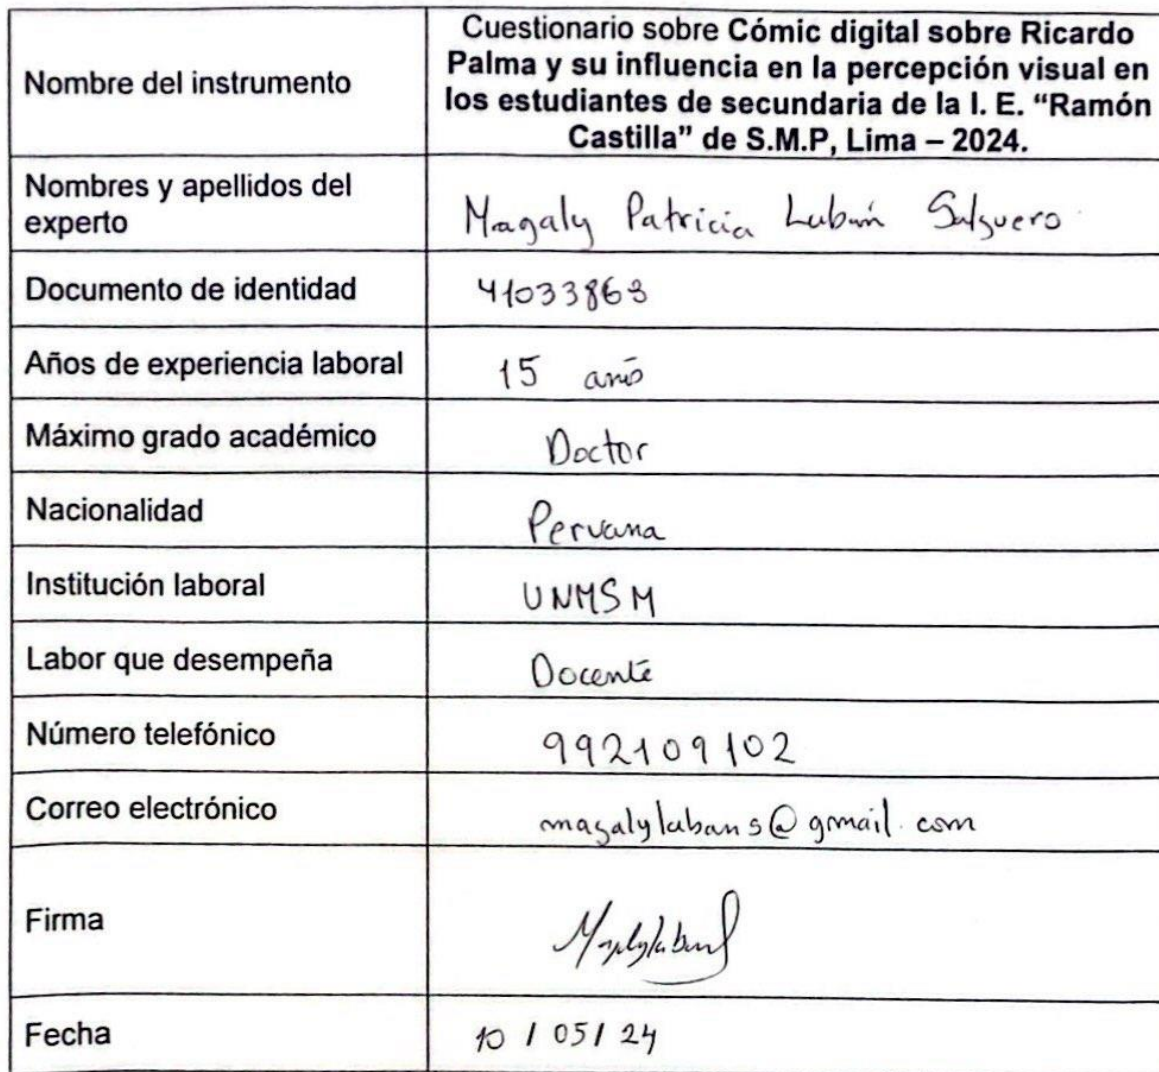 Nombre del instrumento
Cuestionario sobre Cómic digital sobre Ricardo
Palma y su influencia en la percepción visual en
los estudiantes de secundaria de la I. E. “Ramón
Castilla” de S.M.P, Lima – 2024.
Nombres y apellidos del
experto
Magaly Patricia Luban Salguero
Documento de identidad
41033863
Años de experiencia laboral
15 años
Máximo grado académico
Doctor
Nacionalidad
Peruana
Institución laboral
UNMSM
Labor que desempeña
Docente
Número telefónico
992109102
Correo electrónico
magalylubans@gmail.com
Firma
Fecha
10 / 05 / 24